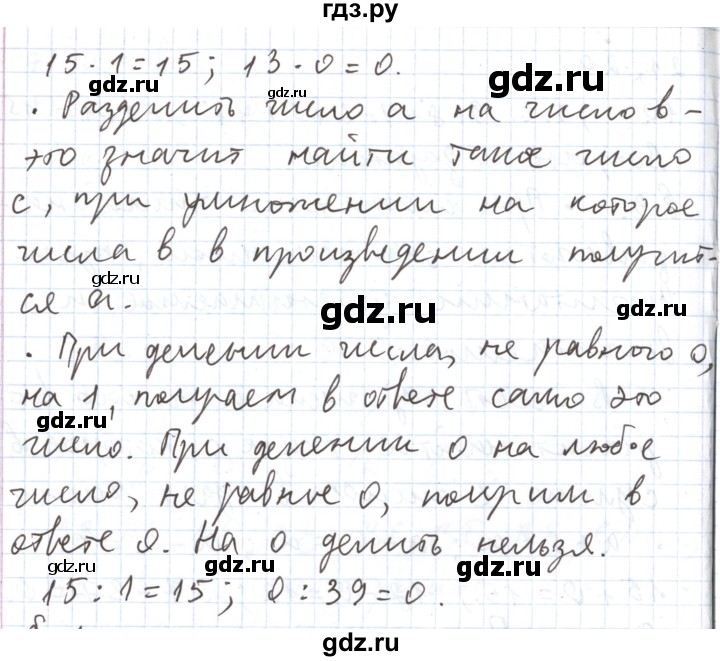 гдз.ру
15 · 1 = 15; 13 · 0 = 0.
gdz.ru gdz.ru
· Разделить число а на число в -
gdz.ru
это значит найти такое число
с, при умножении на которое
gdz.ru gdz.ru
числа в в произведении получит-
ся а.
gdz.ru
gdz.ru gdz.ru
· При делении числа, не равного 0,
на 1, получаем в ответе само это
gdz.ru gdz.ru
число. При делении 0 на любое
число, не равное 0, получим в
gdz.ru
ответе 0. На 0 делить нельзя.
gdz.ru gdz.ru
15 : 1 = 15; 0 : 39 = 0.
gdz.ru